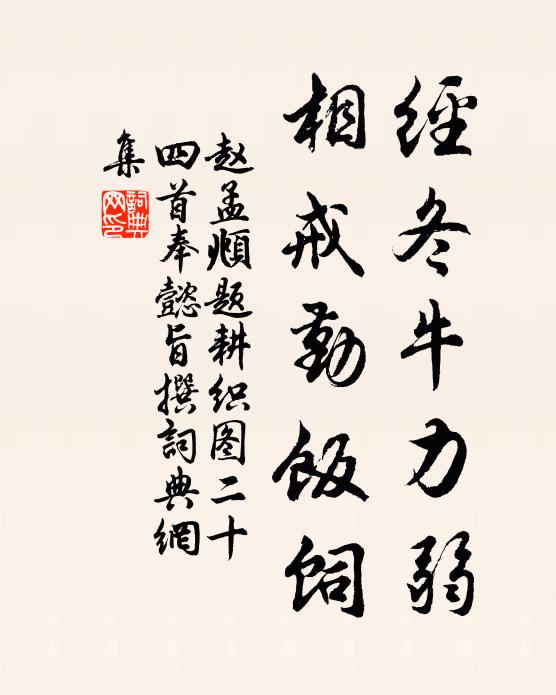 經冬牛力弱
相戒勤飯飼
赵孟頫題耕织图二十
四首奉懿旨撰詞典網
集
詞典網印